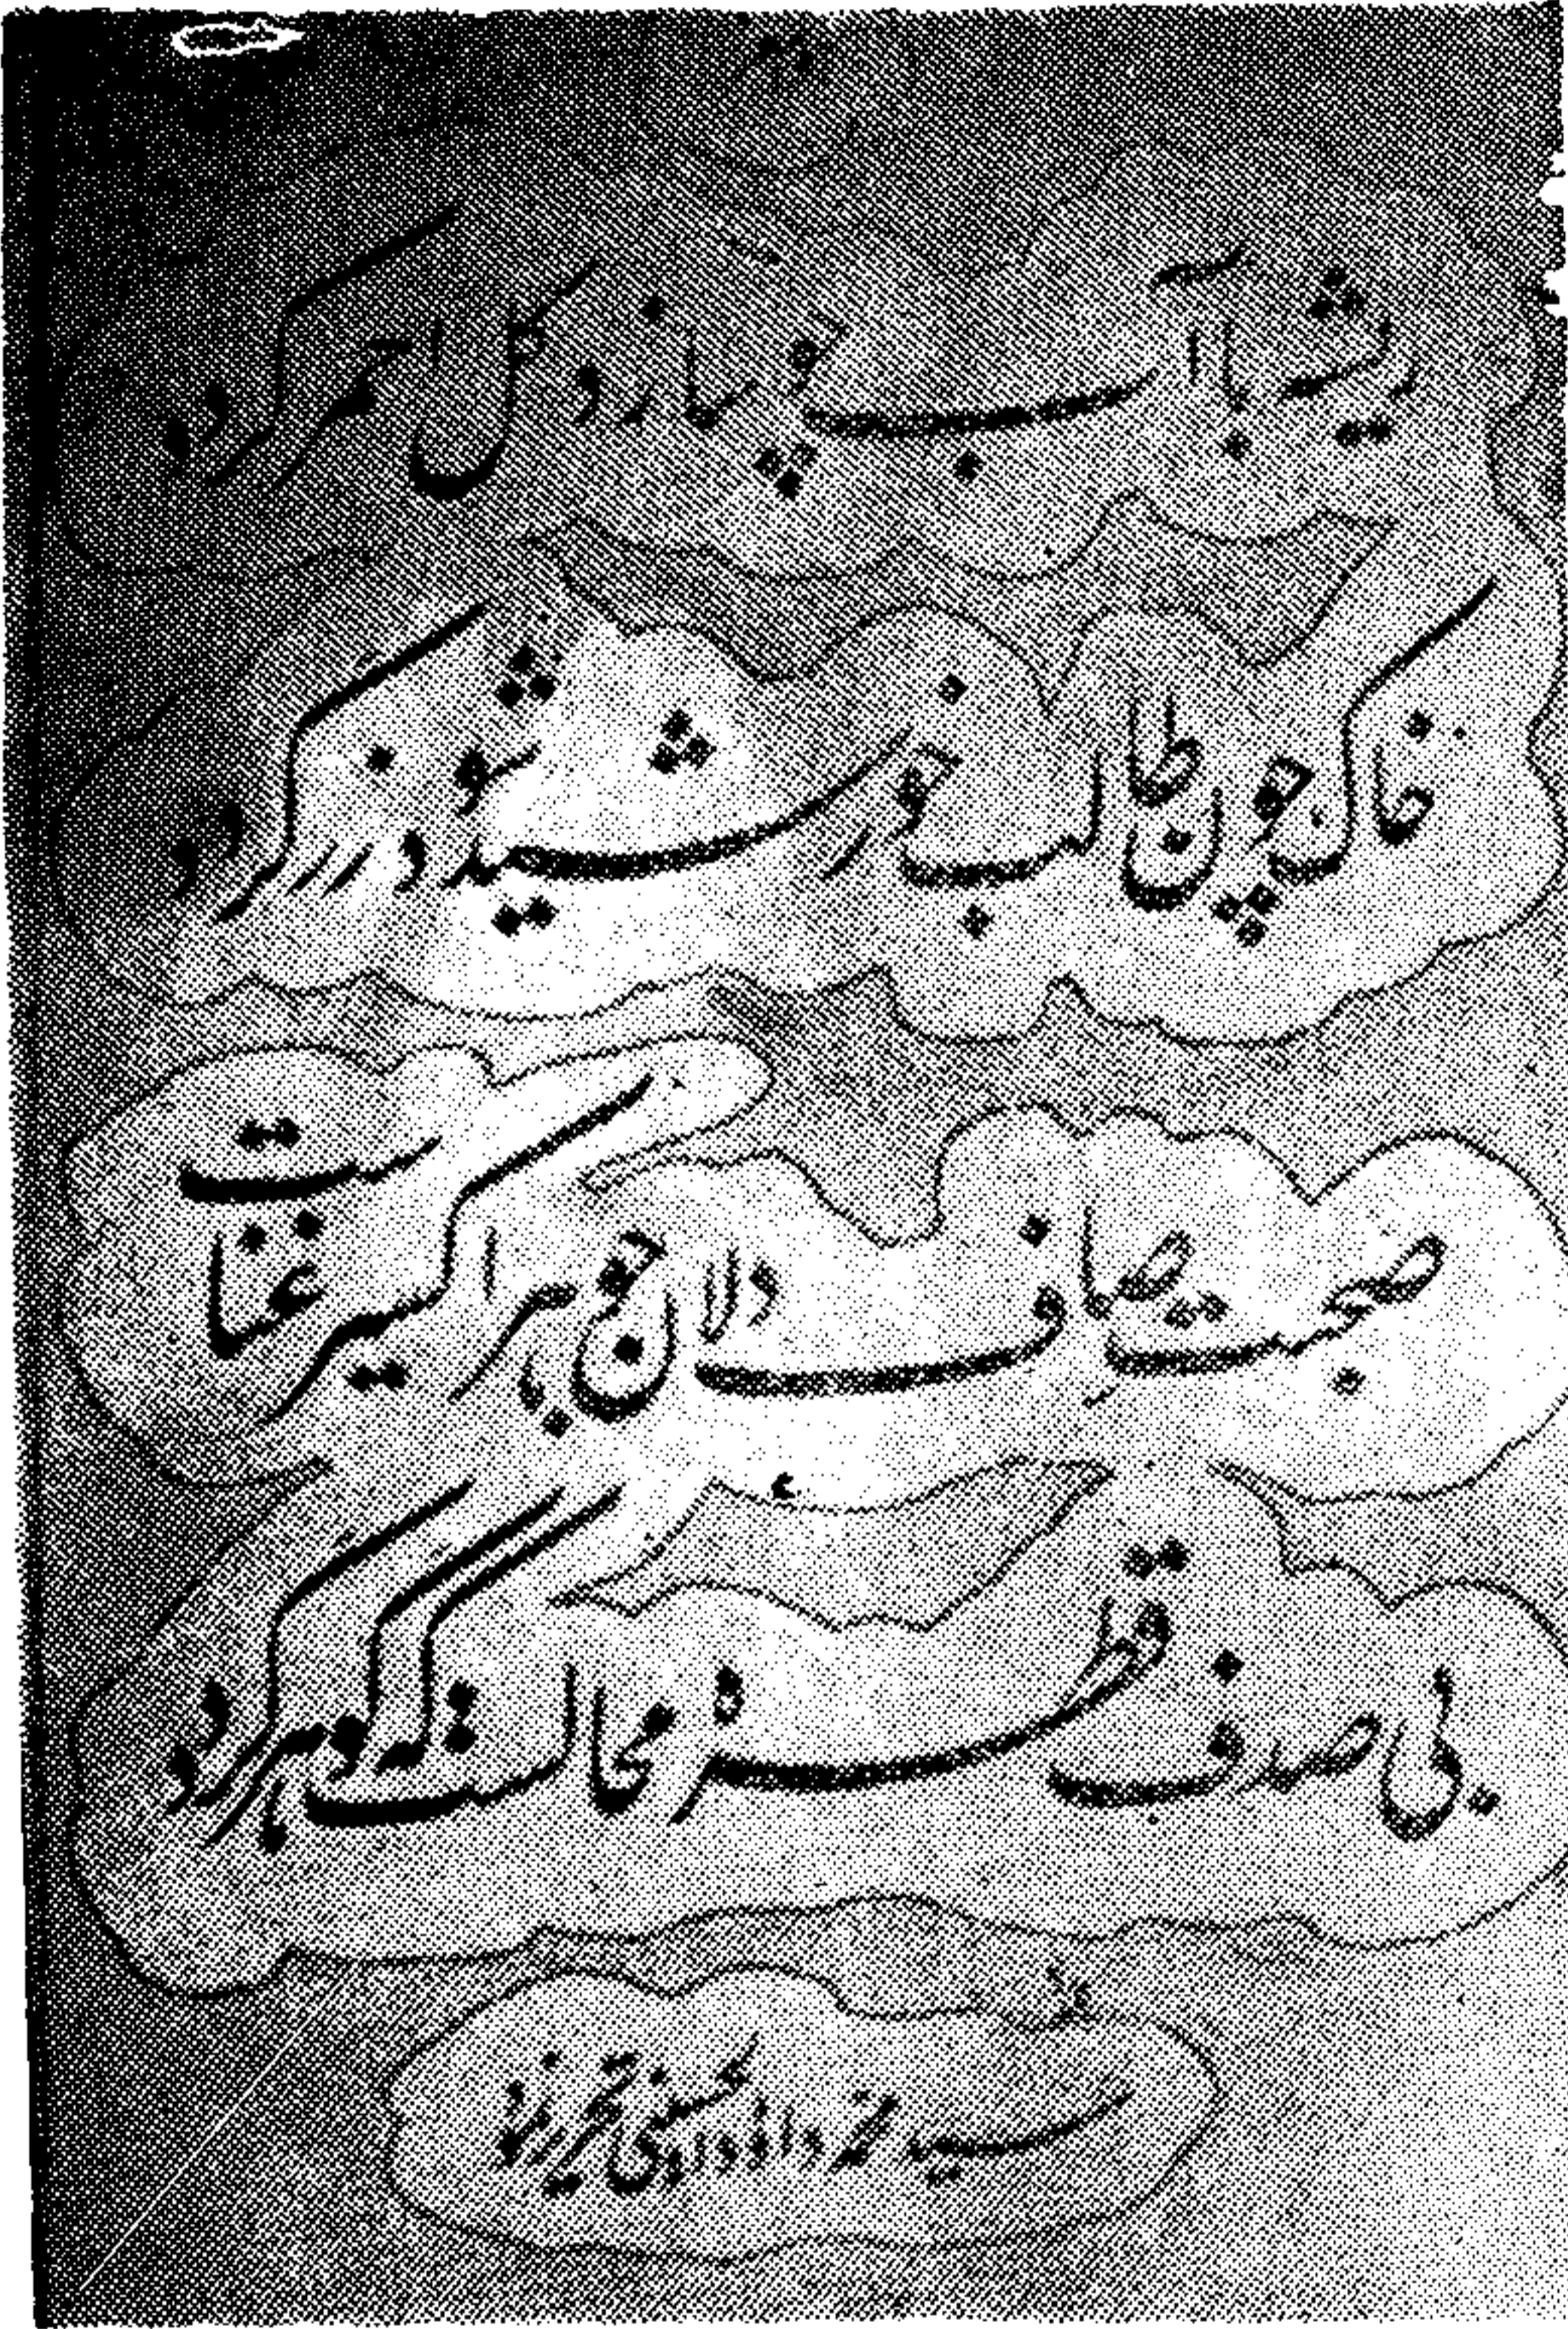 ریشه با آب چو سازد گل احمر گردد
خاک چون طالب خورشید شود زر گردد
صحبت صاف دلان جوهر اکسیر غناست
بی صدف قطره محالست که گوهر گردد
سید محمد داود الحسینی تحریر نمود